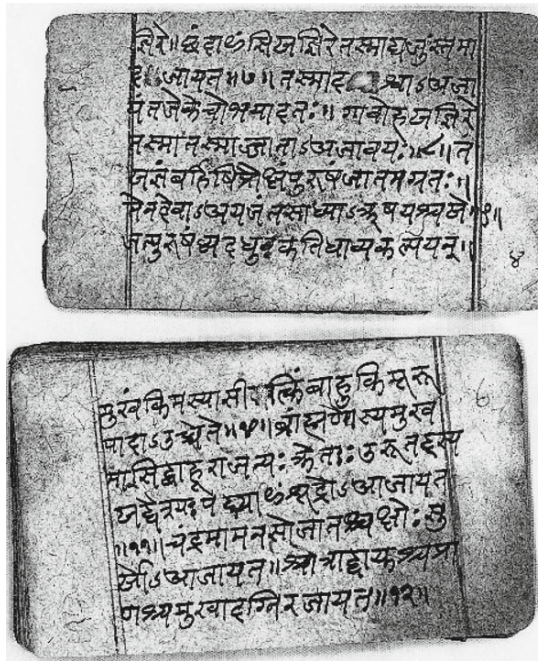 ज्ञिरे॥छंदाᳪसिजज्ञिरेतस्माद्यजुंस्तमा
दऽजायत॥७॥तस्माद श्वाऽअजा
यतजेकेचोभयादतः॥गावोहजज्ञिरे
तस्मातस्माज्जाताऽअजावयः॥८॥त
जज्ञंबर्हिषिप्रौक्षपुरूषंजातमग्रतः॥
तेनदेवाऽअयजंतसाध्याऽऋषयश्चजे॥९॥
जत्पुरुषंव्यदधुःकतिधाव्यकल्पयन्॥
४
मुखंकिमस्यासी त्किंबाहुकिमूरू
पादाऽउच्येते॥१०॥ब्राह्मणोस्यमुख
मासिद्बाहूराजन्यःकृतः॥उरूतदस्य
जद्वैश्यःपद्भ्याᳪशूद्रोऽअजायत
॥११॥चंद्रमामनसोजातश्चक्षोःसु
र्जोऽअजायत॥श्रोत्राद्वायुश्चप्रा
णश्चमुखादग्निरजायत॥१२॥